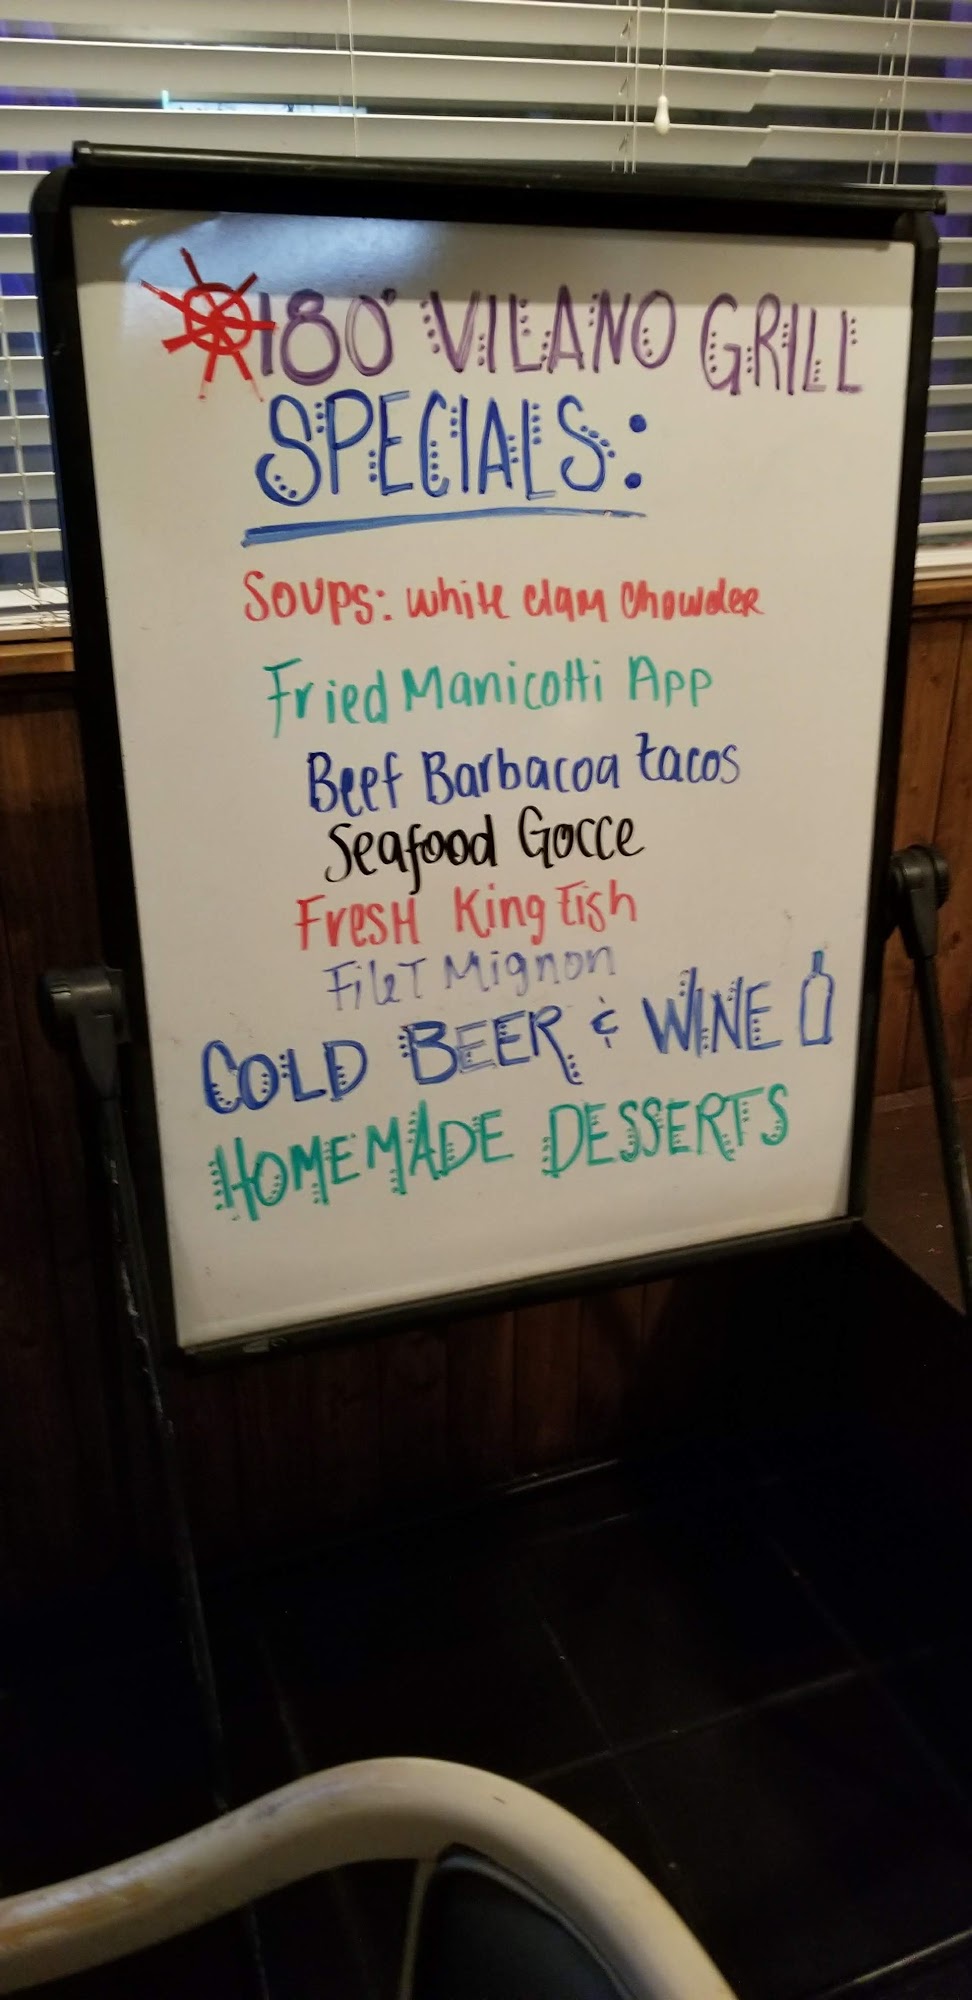 180° VILANO GRILL
SPECIALS:
Soups: White Clam Chowder
Fried Manicotti App
Beef Barbacoa tacos
Seafood Gocce
FresH King fish
FileT Mignon
COLD BEER & WINE
HOMEMADE DESSERTS